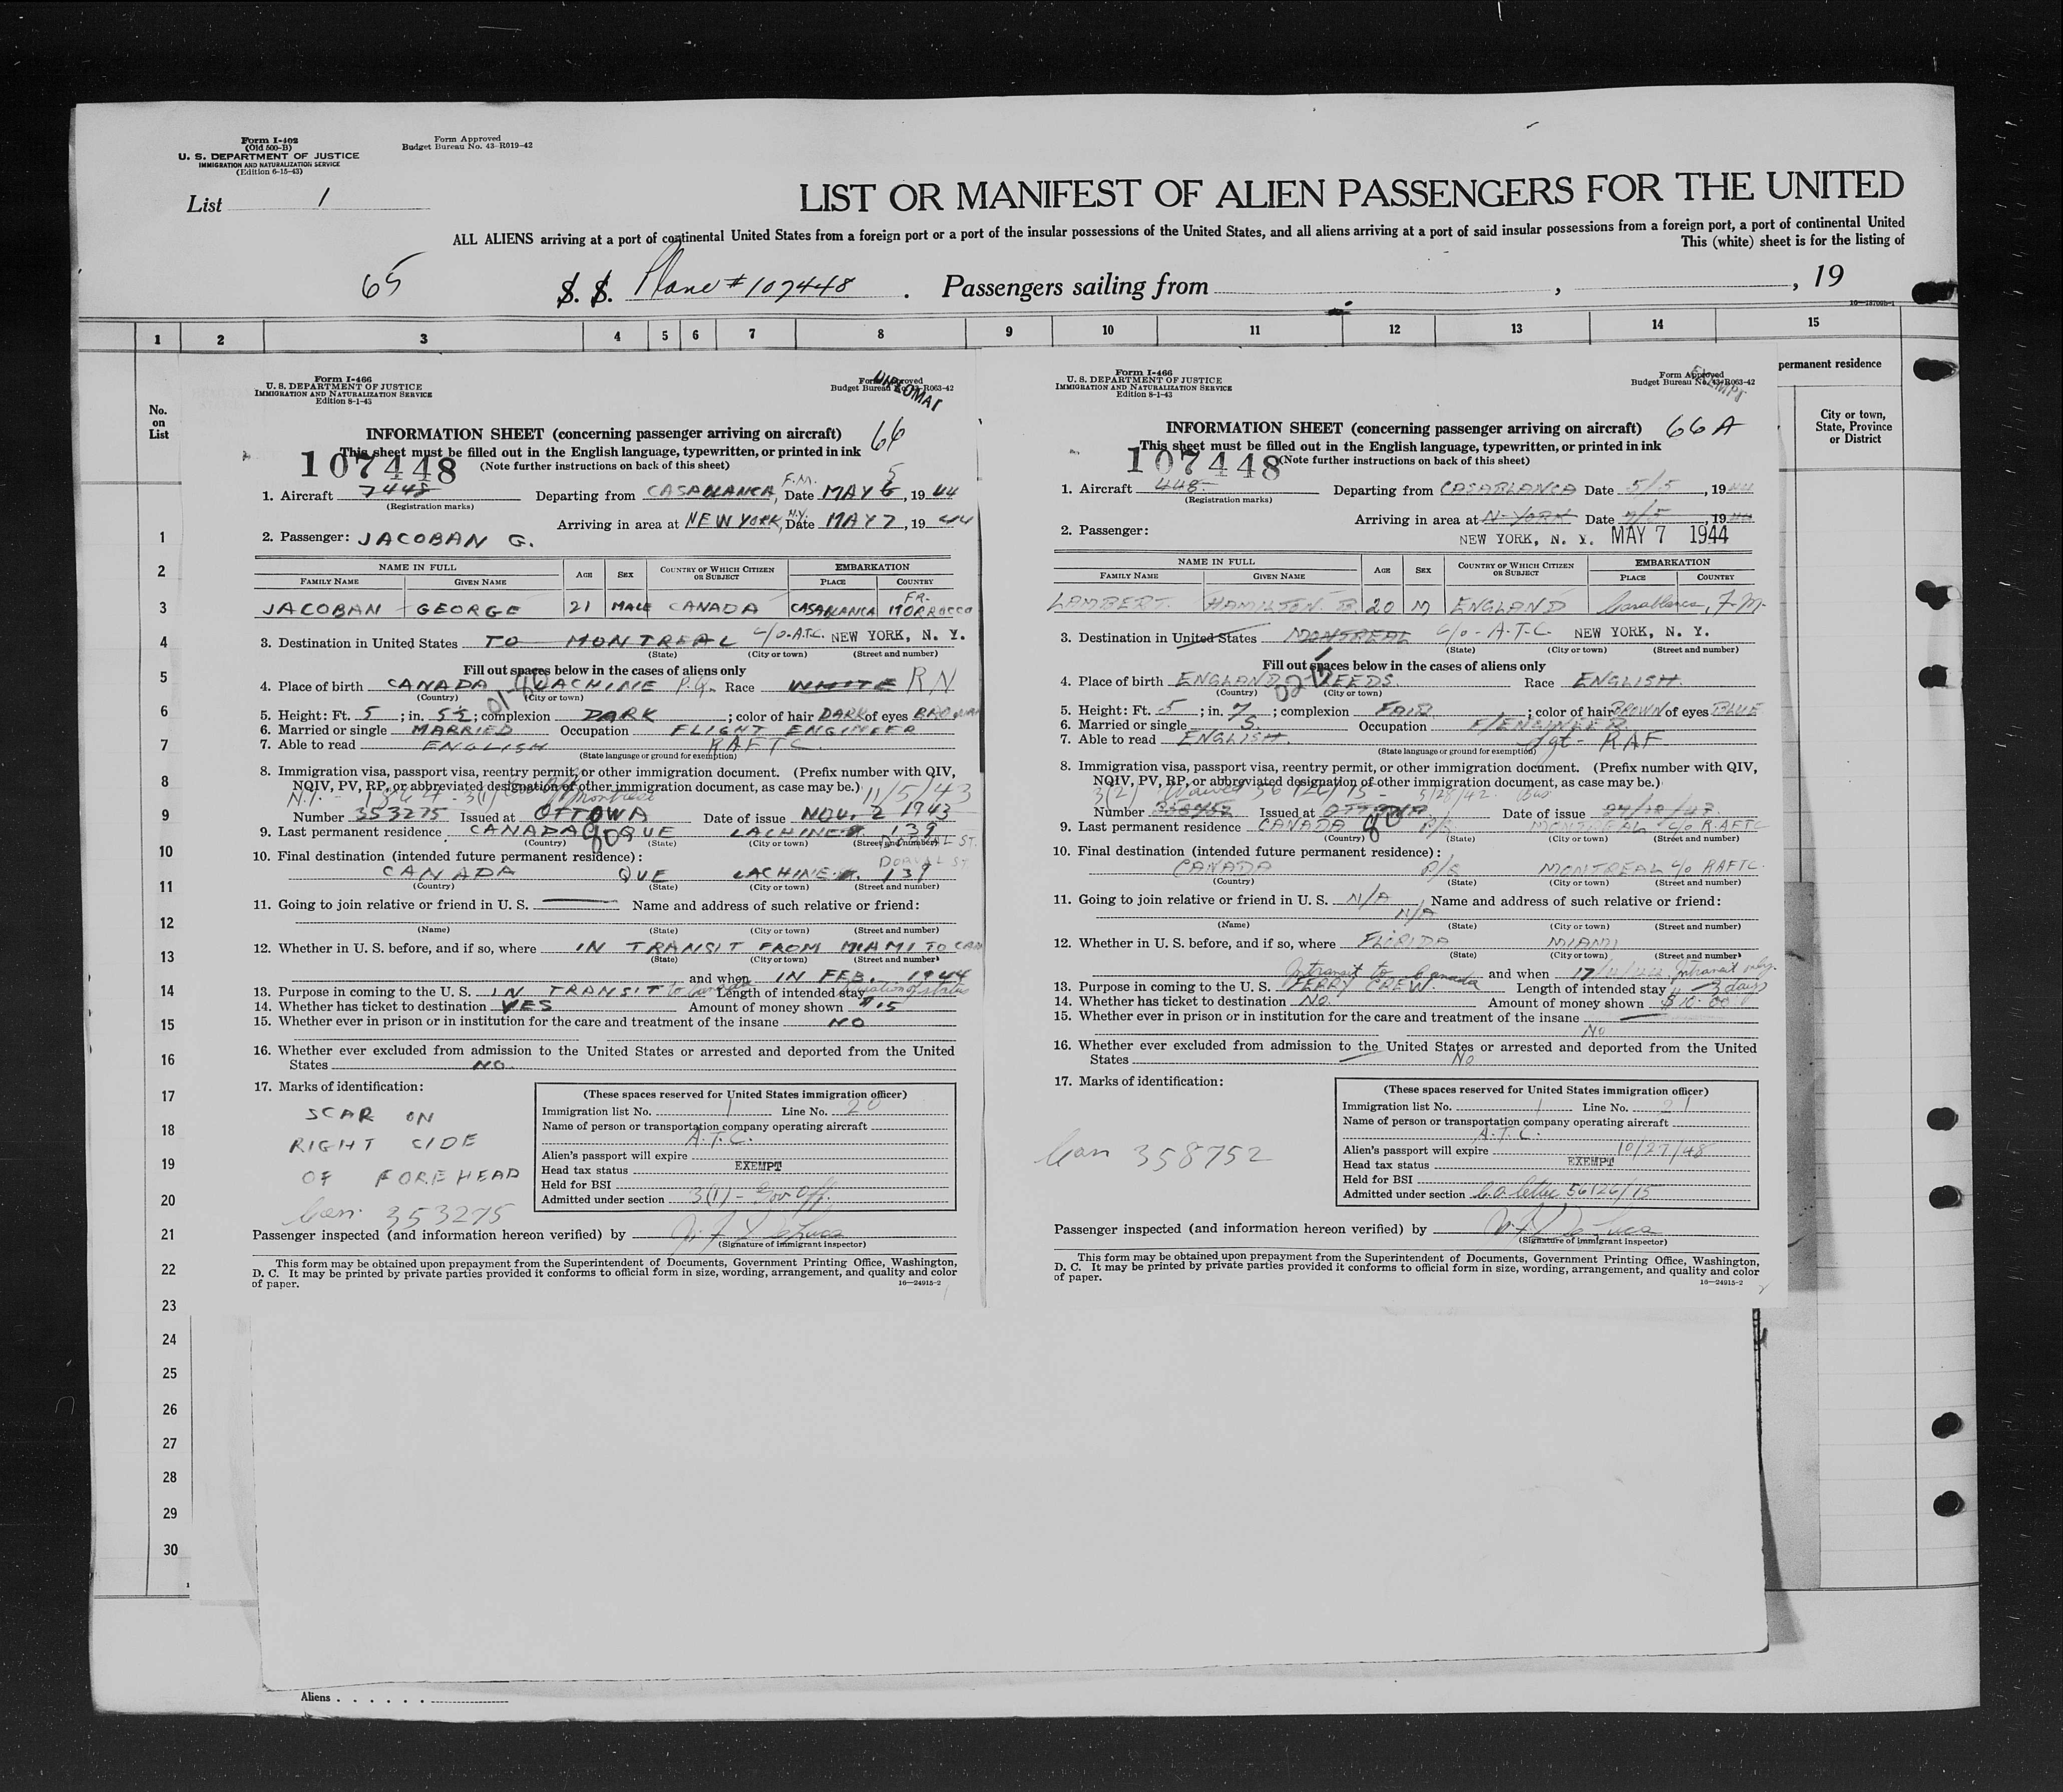 Form I-402
(Old 500-B)
U. S. DEPARTMENT OF JUSTICE
IMMIGRATION AND NATURALIZATION SERVICE
(Edition 6-15-43)
Form Approved
Budget Bureau No. 43-R019-42
List 1
LIST OR MANIFEST OF ALIEN PASSENGERS FOR THE UNITED
ALL ALIENS arriving at a port of continental United States from a foreign port or a port of the insular possessions of the United States, and all aliens arriving at a port of said insular possessions from a foreign port, a port of continental United
This (white) sheet is for the listing of
65 S. S. Plane #107448 . Passengers sailing from , , 19
1 2 3 4 5 6 7 8 9 10 11 12 13 14 15
No.
on
List
permanent residence
City or town,
State, Province
or District
1
2
3
4
5
6
7
8
9
10
11
12
13
14
15
16
17
18
19
20
21
22
23
24
25
26
27
28
29
30
Form I-466
U. S. DEPARTMENT OF JUSTICE
IMMIGRATION AND NATURALIZATION SERVICE
Edition 8-1-43
Form Approved
Budget Bureau No. 43-R063-42
DIPLOMAT
INFORMATION SHEET (concerning passenger arriving on aircraft) 66
This sheet must be filled out in the English language, typewritten, or printed in ink
107448 (Note further instructions on back of this sheet)
1. Aircraft 7448 Departing from CASABLANCA, F.M. Date MAY 6 5, 1944
(Registration marks)
Arriving in area at NEW YORK, N.Y. Date MAY 7, 1944
2. Passenger: JACOBAN G.
NAME IN FULL AGE SEX COUNTRY OF WHICH CITIZEN OR SUBJECT EMBARKATION
FAMILY NAME GIVEN NAME PLACE COUNTRY
JACOBAN GEORGE 21 MALE CANADA CASABLANCA FR. MORROCCO
3. Destination in United States TO MONTREAL C/O-A.T.C. NEW YORK, N. Y.
(State) (City or town) (Street and number)
Fill out spaces below in the cases of aliens only
4. Place of birth CANADA LACHINE P.Q. Race WHITE RN
(Country) (City or town)
5. Height: Ft. 5; in. 5½; complexion DARK; color of hair DARK of eyes BROWN
6. Married or single MARRIED Occupation FLIGHT ENGINEER
7. Able to read ENGLISH RAFTC
(State language or ground for exemption)
8. Immigration visa, passport visa, reentry permit, or other immigration document. (Prefix number with QIV,
NQIV, PV, RP, or abbreviated designation of other immigration document, as case may be.)
11/5/43
Number 353275 Issued at OTTOWA Date of issue NOV. 2 1943
9. Last permanent residence CANADA 80 QUE LACHINE 139 DORVAL ST.
(Country) (State) (City or town) (Street and number)
10. Final destination (intended future permanent residence):
CANADA QUE LACHINE 139 DORVAL ST
(Country) (State) (City or town) (Street and number)
11. Going to join relative or friend in U. S. Name and address of such relative or friend:
(Name) (State) (City or town) (Street and number)
12. Whether in U. S. before, and if so, where IN TRANSIT FROM MIAMI TO CAN
(State) (City or town) (Street and number)
and when IN FEB. 1944
13. Purpose in coming to the U. S. IN TRANSIT to Canada Length of intended stay duration of status
14. Whether has ticket to destination YES Amount of money shown $15
15. Whether ever in prison or in institution for the care and treatment of the insane NO
16. Whether ever excluded from admission to the United States or arrested and deported from the United
States NO.
17. Marks of identification:
SCAR ON
RIGHT CIDE
OF FOREHEAD
Can. 353275
(These spaces reserved for United States immigration officer)
Immigration list No. 1 Line No. 20
Name of person or transportation company operating aircraft
A.T.C.
Alien's passport will expire
Head tax status EXEMPT
Held for BSI
Admitted under section 3(1) - Gov Off.
Passenger inspected (and information hereon verified) by
(Signature of immigrant inspector)
This form may be obtained upon prepayment from the Superintendent of Documents, Government Printing Office, Washington,
D. C. It may be printed by private parties provided it conforms to official form in size, wording, arrangement, and quality and color
of paper. 16—24915-2
Form I-466
U. S. DEPARTMENT OF JUSTICE
IMMIGRATION AND NATURALIZATION SERVICE
Edition 8-1-43
Form Approved
Budget Bureau No. 43-R063-42
EXEMPT
INFORMATION SHEET (concerning passenger arriving on aircraft) 66A
This sheet must be filled out in the English language, typewritten, or printed in ink
107448 (Note further instructions on back of this sheet)
1. Aircraft 448 Departing from CASABLANCA Date 5/5, 1944
(Registration marks)
Arriving in area at N-YORK Date 7/5, 1944
2. Passenger: NEW YORK, N. Y. MAY 7 1944
NAME IN FULL AGE SEX COUNTRY OF WHICH CITIZEN OR SUBJECT EMBARKATION
FAMILY NAME GIVEN NAME PLACE COUNTRY
LAMBERT. HAMILTON. B. 20 M ENGLAND Casablanca, F.M.
3. Destination in United States MONTREAL C/O-A.T.C. NEW YORK, N. Y.
(State) (City or town) (Street and number)
Fill out spaces below in the cases of aliens only
4. Place of birth ENGLAND LEEDS. Race ENGLISH.
(Country) (City or town)
5. Height: Ft. 5; in. 7; complexion FAIR; color of hair BROWN of eyes BLUE
6. Married or single S. Occupation F/ENGINEER
7. Able to read ENGLISH. Sgt - RAF
(State language or ground for exemption)
8. Immigration visa, passport visa, reentry permit, or other immigration document. (Prefix number with QIV,
NQIV, PV, RP, or abbreviated designation of other immigration document, as case may be.)
3(2) Waiver 56126/15 - 5/28/42
Number 358752 Issued at OTTAWA Date of issue 27/10/43
9. Last permanent residence CANADA 80 P/Q MONTREAL C/O RAFTC
(Country) (State) (City or town) (Street and number)
10. Final destination (intended future permanent residence):
CANADA P/Q MONTREAL C/O RAFTC.
(Country) (State) (City or town) (Street and number)
11. Going to join relative or friend in U. S. N/A Name and address of such relative or friend:
N/A
(Name) (State) (City or town) (Street and number)
12. Whether in U. S. before, and if so, where FLORIDA MIAMI
(State) (City or town) (Street and number)
and when Intransit only.
Intransit to Canada
13. Purpose in coming to the U. S. FERRY CREW. Length of intended stay 3 days
14. Whether has ticket to destination NO. Amount of money shown $10.00
15. Whether ever in prison or in institution for the care and treatment of the insane
No
16. Whether ever excluded from admission to the United States or arrested and deported from the United
States No
17. Marks of identification:
Can 358752
(These spaces reserved for United States immigration officer)
Immigration list No. 1 Line No. 21
Name of person or transportation company operating aircraft
A.T.C.
Alien's passport will expire 10/27/48
Head tax status EXEMPT
Held for BSI
Admitted under section C.O. letter 56126/15
Passenger inspected (and information hereon verified) by
(Signature of immigrant inspector)
This form may be obtained upon prepayment from the Superintendent of Documents, Government Printing Office, Washington,
D. C. It may be printed by private parties provided it conforms to official form in size, wording, arrangement, and quality and color
of paper. 16—24915-2
Aliens . . . . . .